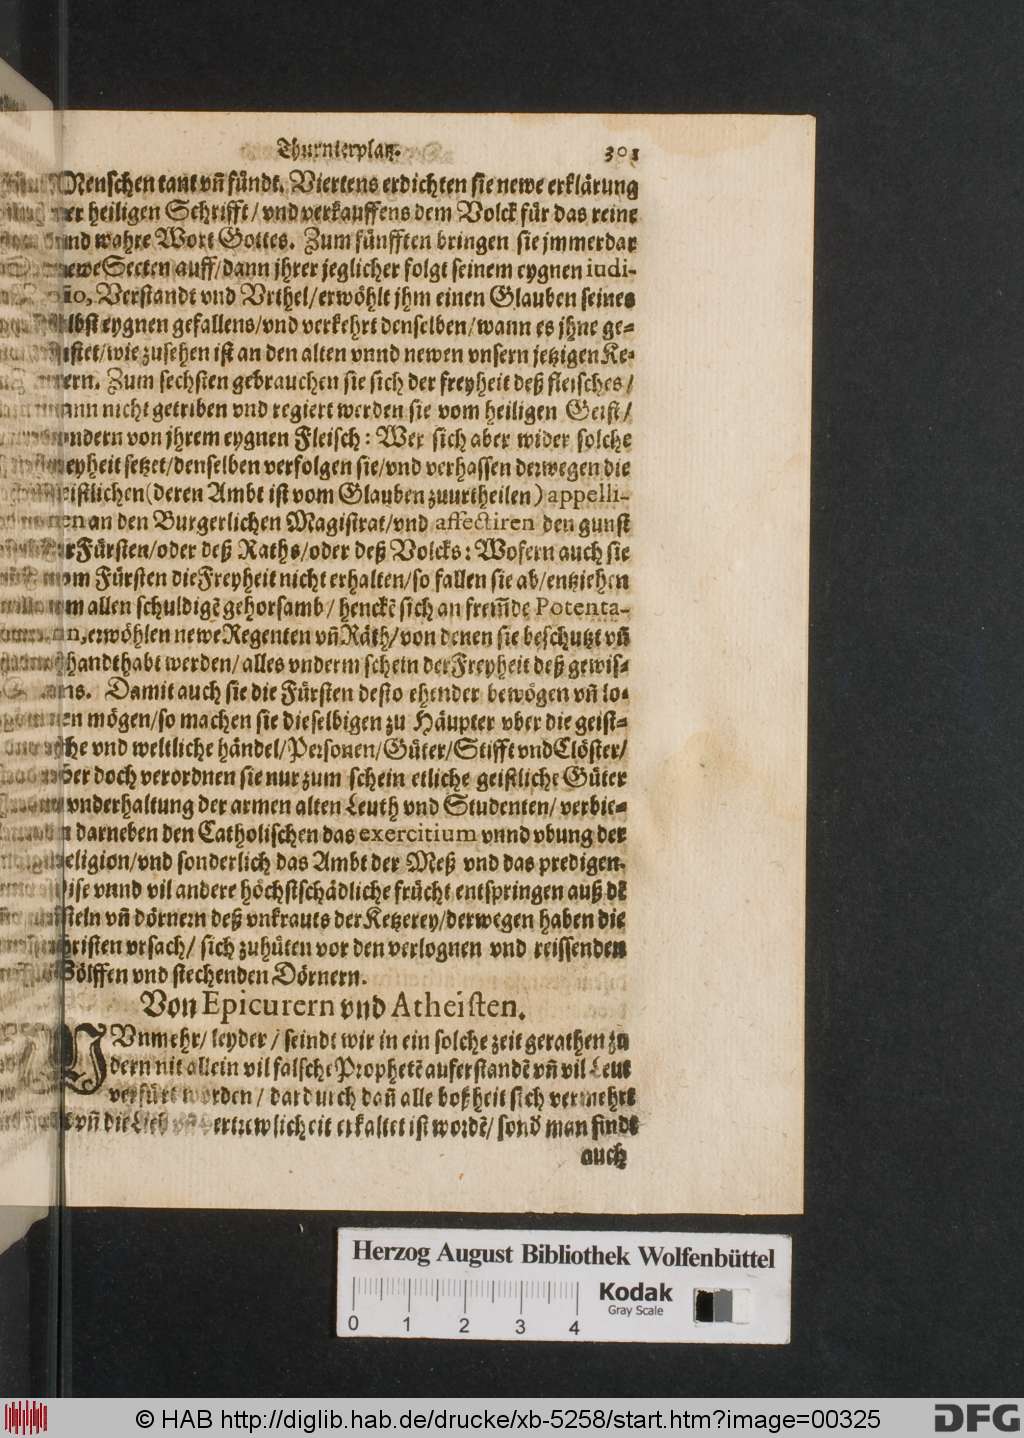 Thurnierplatz. 301
Menschen tant vñ fündt. Viertens erdichten sie newe erklärung
der heiligen Schrifft / vnd verkauffens dem Volck für das reine
vnd wahre Wort Gottes. Zum fünfften bringen sie jmmerdar
newe Secten auff/dann jhrer jeglicher folgt seinem eygnen iudi-
cio, Verstandt vnd Vrthel/erwöhlt jhm einen Glauben seines
selbst eygnen gefallens/vnd verkehrt denselben/wann es jhne ge-
lüstet/wie zusehen ist an den alten vnnd newen vnsern jetzigen Ke-
tzern. Zum sechsten gebrauchen sie sich der freyheit deß fleisches /
dann nicht getriben vnd regiert werden sie vom heiligen Geist /
sondern von jhrem eygnen Fleisch : Wer sich aber wider solche
Freyheit setzet/denselben verfolgen sie/vnd verhassen derwegen die
Geistlichen (deren Ambt ist vom Glauben zuurtheilen) appelli-
ren an den Burgerlichen Magistrat/vnd affectiren den gunst
der Fürsten/oder deß Raths/oder deß Volcks : Wofern auch sie
vom Fürsten die Freyheit nicht erhalten/so fallen sie ab/entziehen
jhm allen schuldigẽ gehorsamb / henckẽ sich an frem̃de Potenta-
ten, erwöhlen newe Regenten vñ Räth/von denen sie beschutzt vñ
handthabt werden/alles vnderm schein der Freyheit deß gewis-
sens. Damit auch sie die Fürsten desto ehender bewögen vñ lo-
cken mögen/so machen sie dieselbigen zu Häupter vber die geist-
liche vnd weltliche händel/Personen/Güter/Stifft vnd Clöster/
aber doch verordnen sie nur zum schein etliche geistliche Güter
zu vnderhaltung der armen alten Leuth vnd Studenten/ verbie-
ten darneben den Catholischen das exercitium vnnd vbung der
Religion/vnd sonderlich das Ambt der Meß vnd das predigen.
Dise vnnd vil andere höchstschädliche frücht entspringen auß dẽ
disteln vñ dörnern deß vnkrauts der Ketzerey/derwegen haben die
Christen vrsach/ sich zuhüten vor den verlognen vnd reissenden
Wölffen vnd stechenden Dörnern.
Von Epicurern vnd Atheisten.
NVnmehr/ leyder / seindt wir in ein solche zeit gerathen in
dern nit allein vil falsche Prophetẽ auferstandẽ vñ vil Leut
verfürt worden / dardurch dañ alle boßheit sich vermehrt
vñ die Lieb vñ Vertrewlicheit erkaltet ist wordẽ/ sonð man findt
auch
Herzog August Bibliothek Wolfenbüttel
Kodak
Gray Scale
0 1 2 3 4
© HAB http://diglib.hab.de/drucke/xb-5258/start.htm?image=00325
DFG